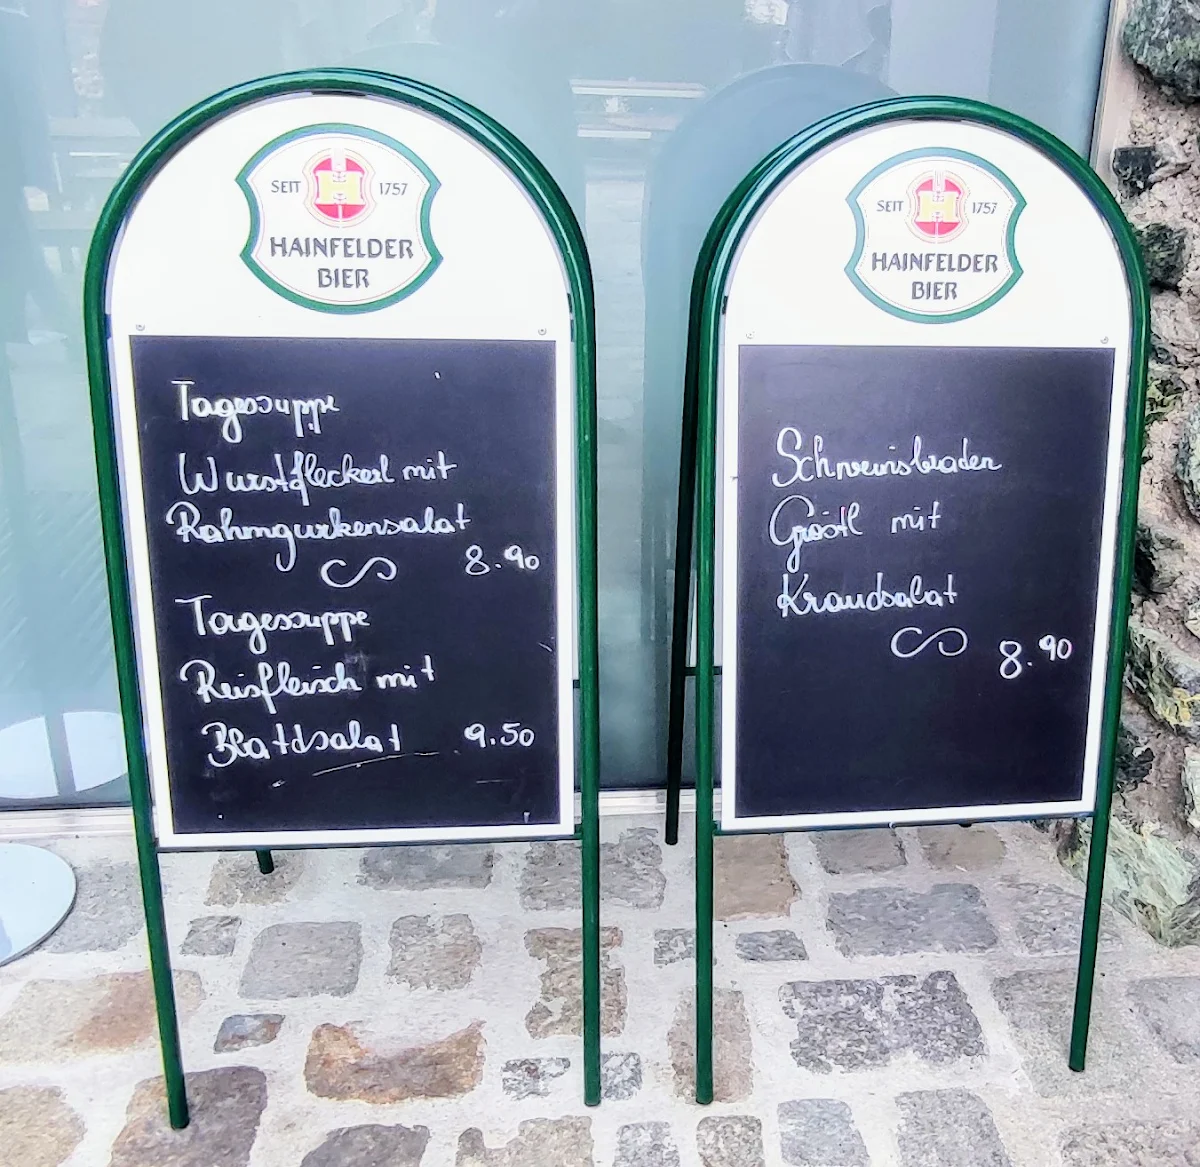 SEIT 1757
HAINFELDER
BIER
Tagessuppe
Wurstfleckerl mit
Rahmgurkensalat
8.90
Tagessuppe
Reisfleisch mit
Blattsalat 9.50
SEIT 1757
HAINFELDER
BIER
Schweinsbraten
Gröstl mit
Krautsalat
8.90